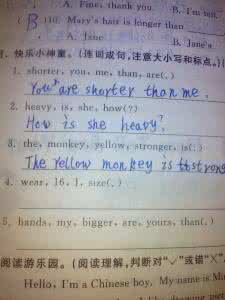 A. Fine, thank you. B. I'm ten.
(B) 10. Mary's hair is longer than
A. Jane B. Jane's
、快乐小神童。(连词成句,注意大小写和标点。)
1. shorter, you, me, than, are(.)
You are shorter than me.
2. heavy, is, she, how(?)
How is she heavy?
3. the, monkey, yellow, stronger, is(.)
The yellow monkey is strong
4. wear, 16, I, size(.)
5. hands, my, bigger, are, yours, than(.)
阅读游乐园。(阅读理解,判断对“√”或错“×”
Hello, I'm a Chinese boy. My name is